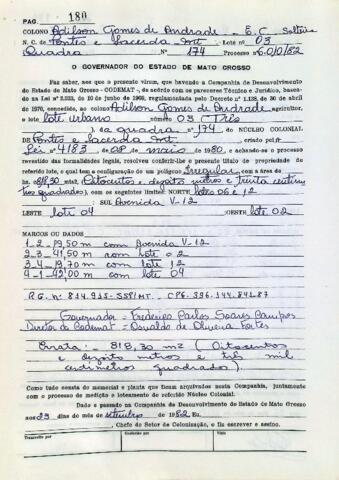 PAG. 180
COLONO Adilson Gomes de Andrade - E.C. Solteiro
N. C. de Pontes e Lacerda - MT Lote nº 03
Quadra Nº 174 Processo 6.010/82
O GOVERNADOR DO ESTADO DE MATO GROSSO
Faz saber, aos que o presente virem, que havendo a Companhia de Desenvolvimento
do Estado de Mato Grosso - CODEMAT -, de acordo com os pareceres Técnico e Jurídico, basea-
do na Lei nº 3.933, de 10 de junho de 1969, regulamentada pelo Decreto n.º 1.138, de 30 de abril
de 1970, concedido, ao colono Adilson Gomes de Andrade agricultor,
o lote urbano número 03 (Três
) da quadra nº 174. do NÚCLEO COLONIAL
DE Pontes e Lacerda MT
Lei nº 4183, de 08 de maio de 1980, e achando-se o processo
revestido das formalidades legais, resolveu conferir-lhe o presente título de propriedade do
referido lote, o qual tem a configuração de um polígono Irregular com a área de
818,30 Oitocentos e dezoito metros e trinta centíme
tros quadrados, com os seguintes limites: NORTE lotes 06 e 12
SUL Avenida V-12
LESTE lote 04 OESTE lote 02
MARCOS OU DADOS
1-2 - 19,50 m com Avenida V-12
2-3 - 41,50 m com lote 02
3-4 - 19,70 m com lote 12
4-1 - 42,00 m com lote 04
R.G. nº 814.915-SSP/MT. - CPF. 396.144.841.87
Governador - Frederico Carlos Soares Campos
Diretor da Codemat - Osvaldo de Oliveira Fortes
Errata: - 818,30 m2 (Oitocentos
e dezoito metros e três mil
centímetros quadrados).
Como tudo consta do memorial e planta que ficam arquivados nesta Companhia, juntamente
com o processo de medição e loteamento do referido Núcleo Colonial.
Dado e passado na Companhia de Desenvolvimento do Estado de Mato Grosso
aos 23 dias do mês de setembro de 1982 Eu,
, Chefe do Setor de Colonização, o fiz escrever e assino.
Transcrito por Conferido por Visto